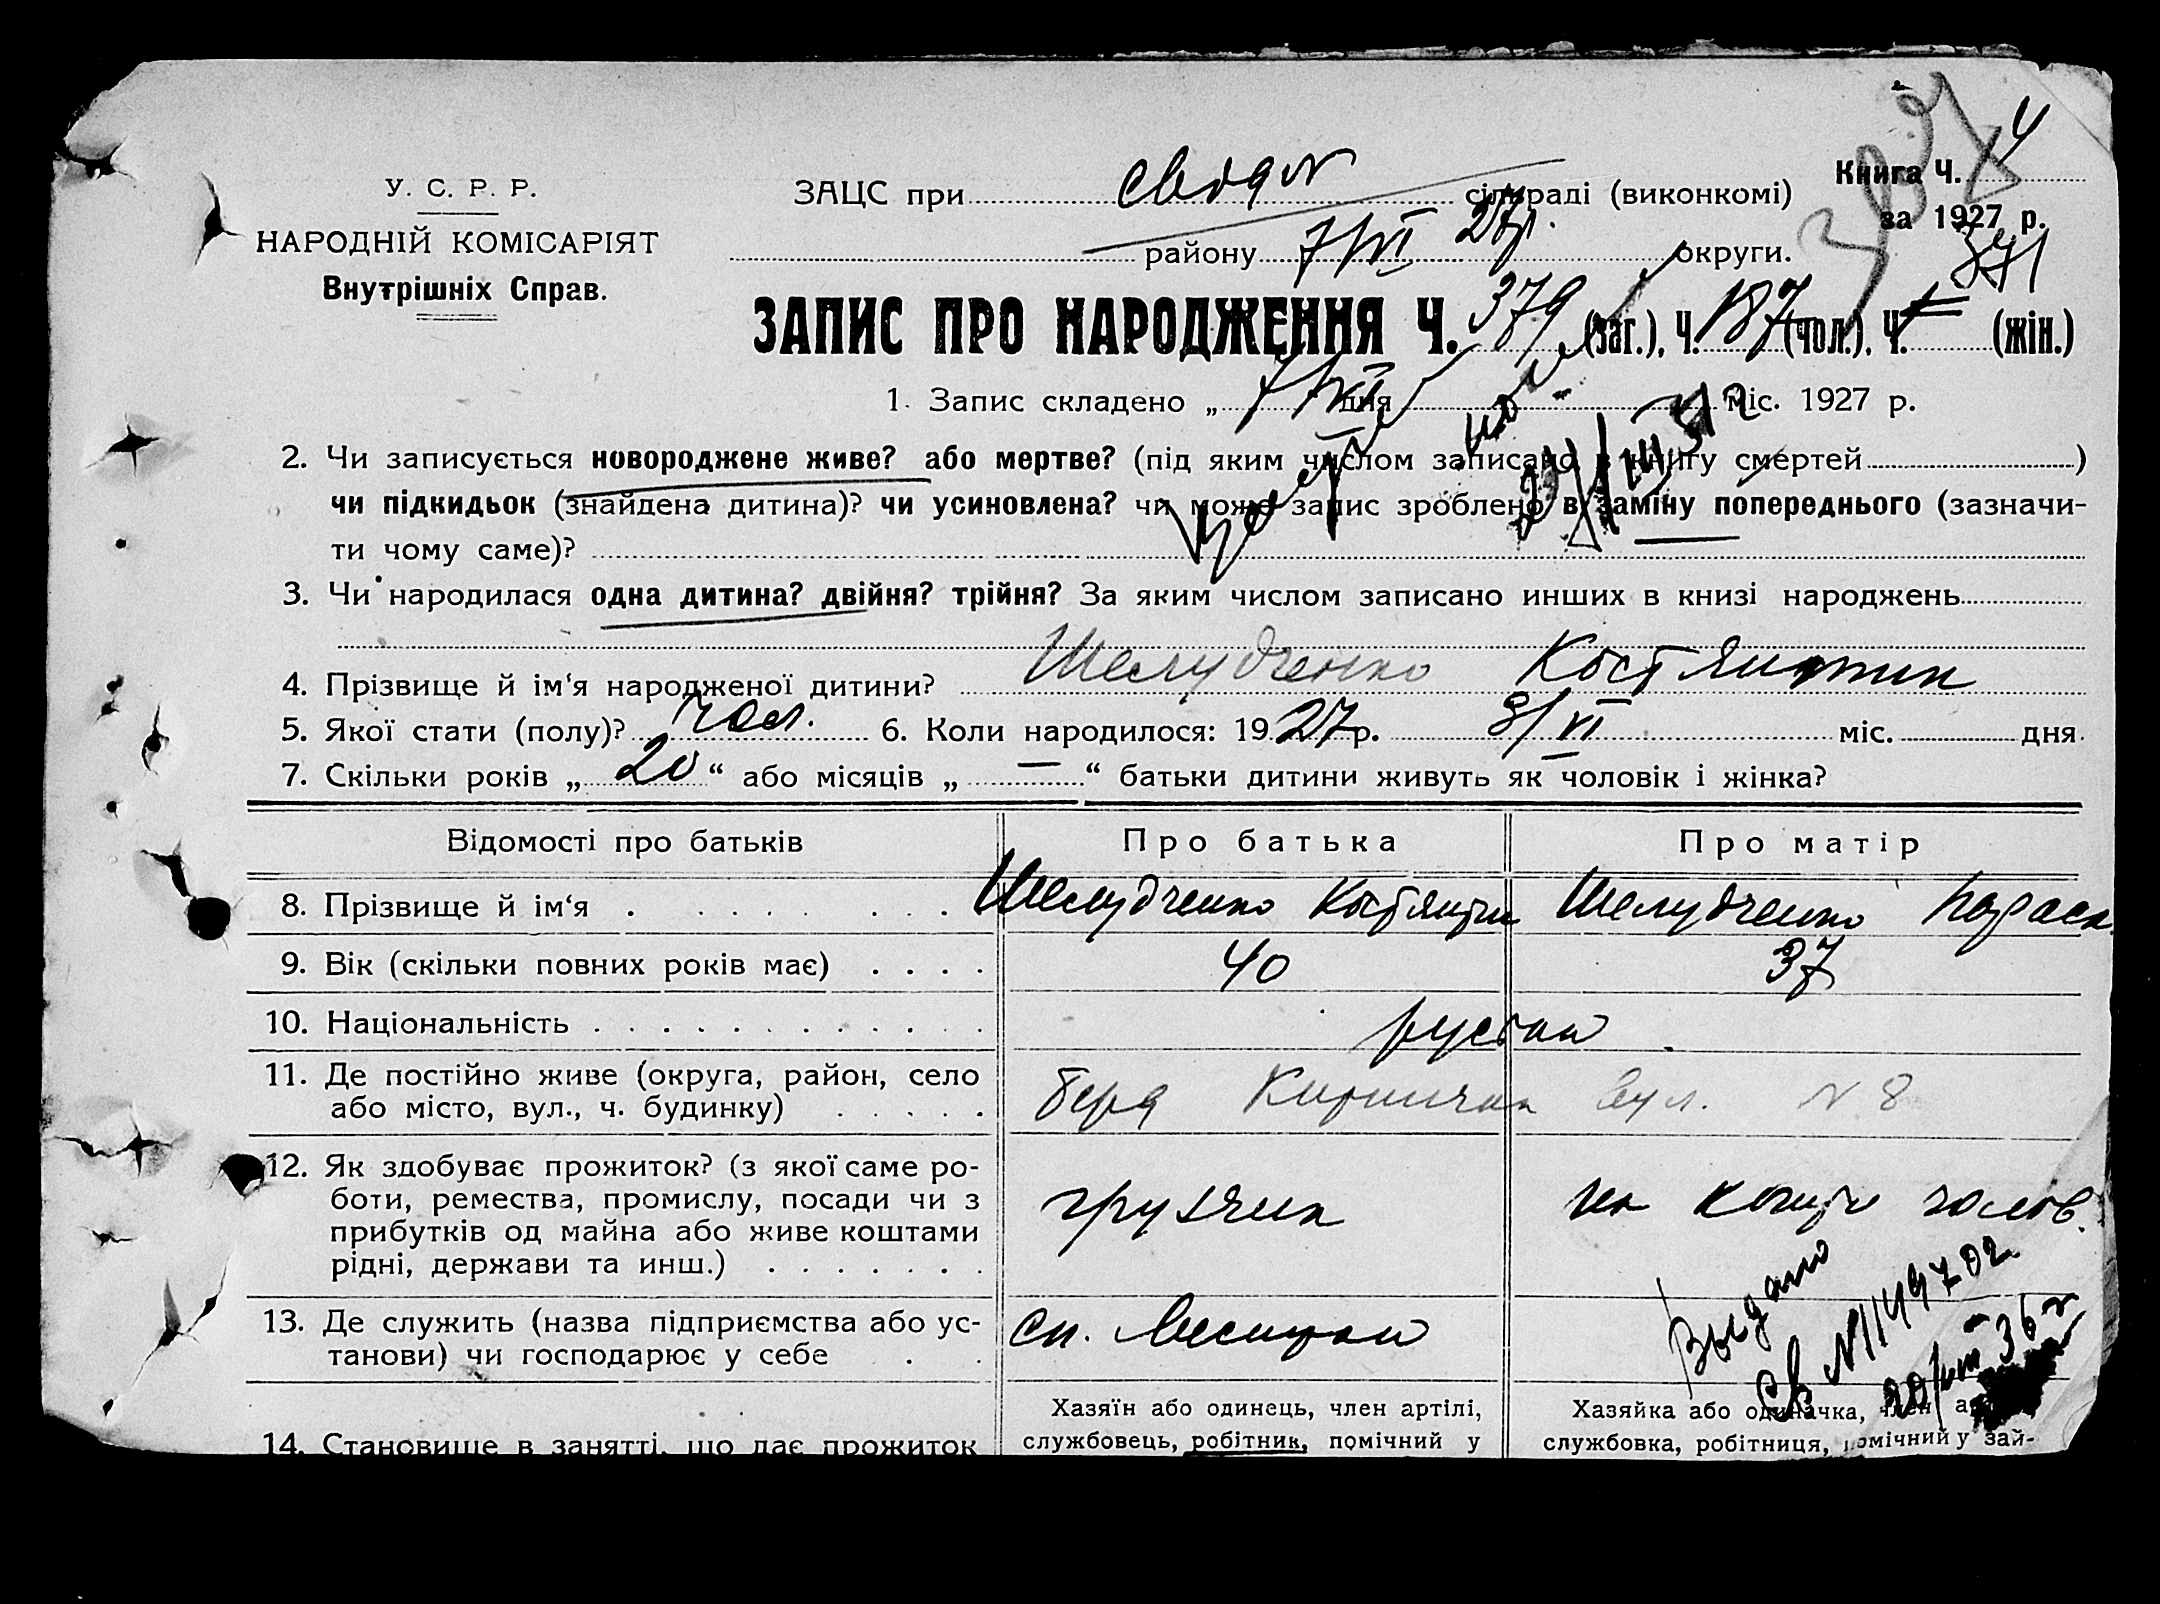 Книга Ч. 4
У. С. Р. Р.
ЗАЦС при сільраді (виконкомі)
за 1927 р.
НАРОДНІЙ КОМІСАРІЯТ
району 7/VI 27р. округи.
371
Внутрішніх Справ.
ЗАПИС ПРО НАРОДЖЕННЯ Ч. 379 (заг.), Ч. 187 (чол.), Ч. (жін.)
1. Запис складено „ дня міс. 1927 р.
2. Чи записується новороджене живе? або мертве? (під яким числом записано в книгу смертей )
чи підкидьок (знайдена дитина)? чи усиновлена? чи може запис зроблено в заміну попереднього (зазначи-
ти чому саме)?
3. Чи народилася одна дитина? двійня? трійня? За яким числом записано инших в книзі народжень
4. Прізвище й ім'я народженої дитини? Шелудченко Костянтин
5. Якої стати (полу)? чол. 6. Коли народилося: 1927р. 8/VI міс. дня
7. Скільки років „ 20 “ або місяців „ — “ батьки дитини живуть як чоловік і жінка?
Відомості про батьків Про батька Про матір
8. Прізвище й ім'я . Шелудченко Костянтин Шелудченко Параск.
9. Вік (скільки повних років має) 40 37
10. Національність
11. Де постійно живе (округа, район, село
або місто, вул., ч. будинку) Берд Кирпичн вул. N 8
12. Як здобуває прожиток? (з якої саме ро-
боти, ремества, промислу, посади чи з
прибутків од майна або живе коштами
рідні, держави та инш.) грузчик на кошти чолов.
13. Де служить (назва підприємства або ус-
танови) чи господарює у себе
Выдано
Св. N114970 2
36 г
Хазяїн або одинець, член артілі, Хазяйка або одиначка, член
14. Становище в занятті, що дає прожиток службовець, робітник, помічний у службовка, робітниця, помічний у зай-